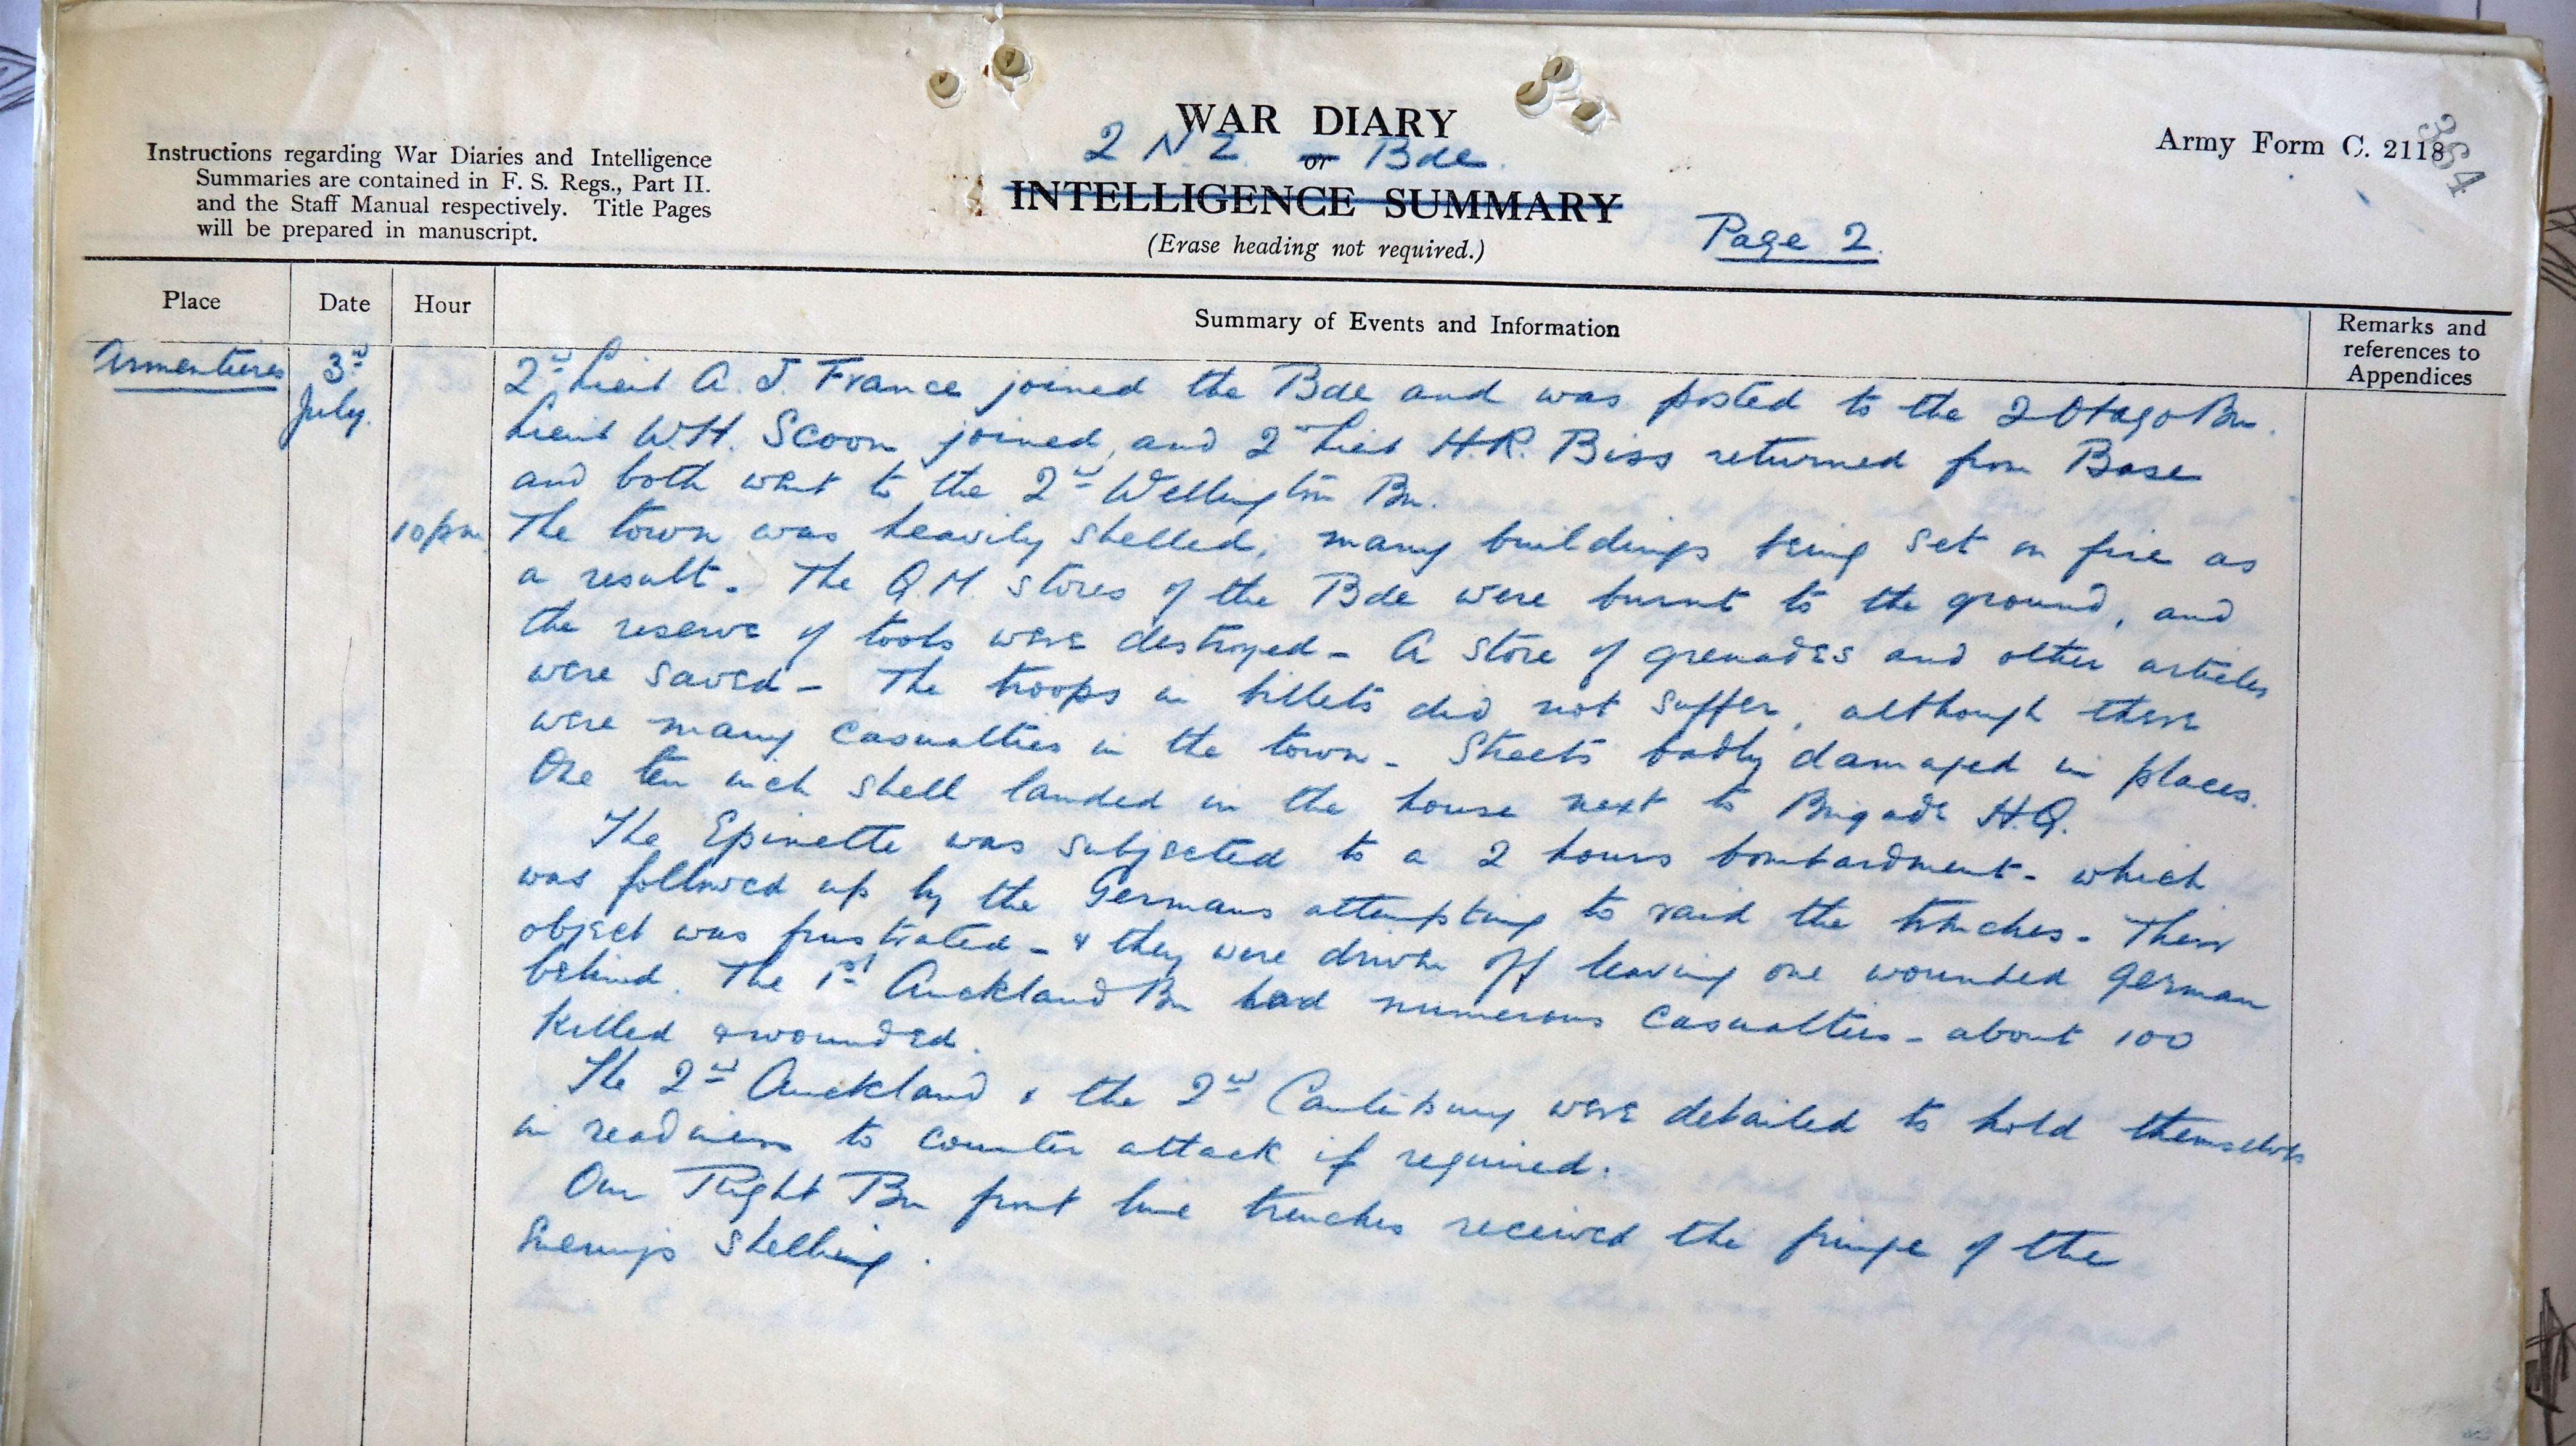 WAR DIARY
2 N.Z. or Bde.
INTELLIGENCE SUMMARY
(Erase heading not required.)
Instructions regarding War Diaries and Intelligence
Summaries are contained in F. S. Regs., Part II.
and the Staff Manual respectively. Title Pages
will be prepared in manuscript.
Army Form C. 2118
364
Page 2.
Place
Date
Hour
Summary of Events and Information
Remarks and
references to
Appendices
Armentieres
3rd
July.
2nd Lieut A. J. France joined the Bde and was posted to the 2 Otago Bn.
Lieut W.H. Scoon joined, and 2nd Lieut H.R. Biss returned from Base
and both went to the 2nd Wellington Bn.
10 pm. The town was heavily shelled, many buildings being set on fire as
a result. The Q.M. stores of the Bde were burnt to the ground, and
the reserve of tools were destroyed - A store of grenades and other articles
were saved - The troops in billets did not suffer, although there
were many casualties in the town - Streets badly damaged in places.
One ten inch shell landed in the house next to Brigade H.Q.
The Epinette was subjected to a 2 hours bombardment - which
was followed up by the Germans attempting to raid the trenches - Their
object was frustrated - & they were driven off leaving one wounded German
behind. The 1st Auckland Bn had numerous casualties - about 100
killed & wounded.
The 2nd Auckland & the 2nd Canterbury were detailed to hold themselves
in readiness to counter attack if required.
Our Right Bn front line trenches received the fringe of the
Enemy's shelling.